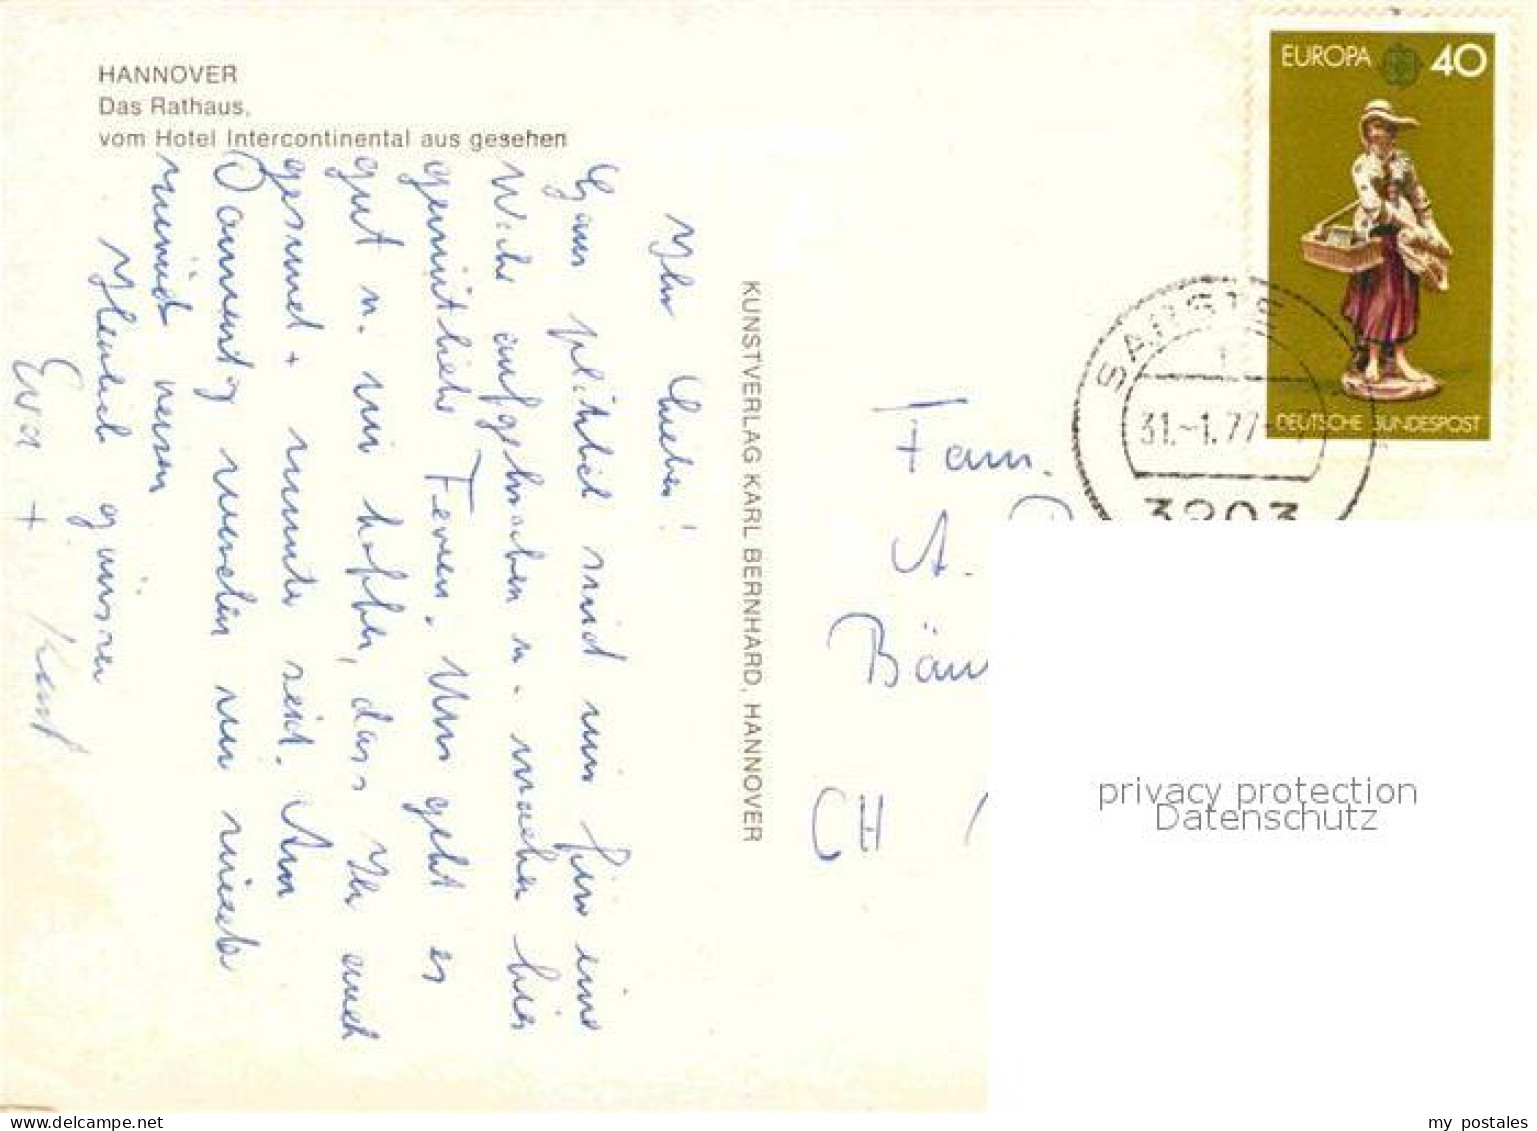 HANNOVER
Das Rathaus,
vom Hotel Intercontinental aus gesehen
Ihr Lieben!
Ganz plötzlich sind wir für eine
Woche aufgebrochen u. machen hier
gemütliche Ferien. Uns geht es
gut u. wir hoffen, dass Ihr auch
gesund + munter seid. Am
Sonntag werden wir wieder
zurück reisen
Herzlich grüssen
Eva +
KUNSTVERLAG KARL BERNHARD, HANNOVER
EUROPA 40
DEUTSCHE BUNDESPOST
SARSTE
31.-1.77
3203
Fam.
A.
Bäu
CH
privacy protection
Datenschutz
my postales
www.delcampe.net